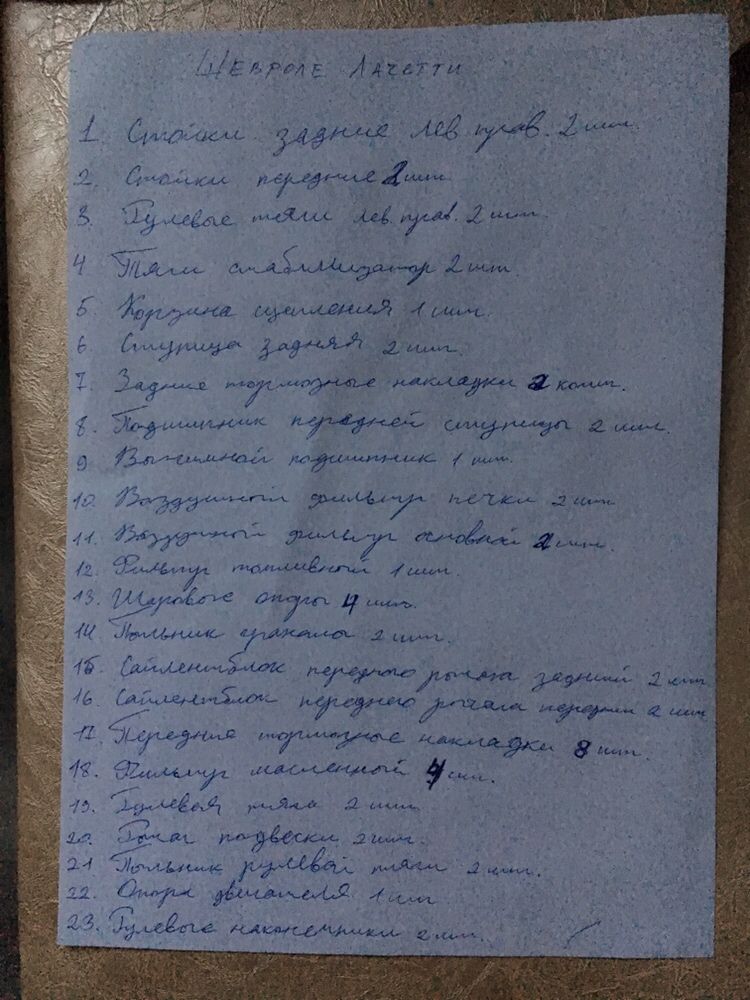 Шевроле Лачетти
1. Стойки задние лев. прав. 2 шт.
2. Стойки передние 2 шт
3. Рулевые тяги лев. прав. 2 шт.
4 Тяги стабилизатор 2 шт.
5. Корзина сцепления 1 шт.
6 Ступица задняя 2 шт.
7. Задние тормозные накладки 2 комп.
8. Подшипник передней ступицы 2 шт.
9 Выжимной подшипник 1 шт.
10. Воздушный фильтр печки 2 шт
11. Воздушной фильтр основной 2 шт.
12. Фильтр топливный 1 шт.
13. Шаровые опоры 4 шт.
14. Пыльник гранаты 2 шт.
15. Сайлентблок переднего рычага задний 2 шт
16. Сайлентблок переднего рычага передний 2 шт
17. Передние тормозные накладки 8 шт.
18. Фильтр масленный 4 шт.
19. Рулевая тяга 2 шт
20. Рычаг подвески 2 шт.
21 Пыльник рулевой тяги 2 шт.
22. Опора двигателя 1 шт
23. Рулевые наконечники 2 шт.